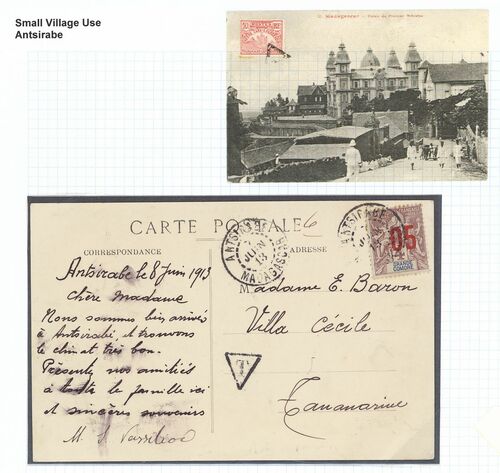 Small Village Use
Antsirabe
Madagascar - Palais du Premier Ministre
CARTE POSTALE
CORRESPONDANCE
ADRESSE
ANTSIRABE
JUIN
13
MADAGASCAR
ANTSIRABE
05
GRANDE
COMORE
T
Antsirabe le 8 Juin 1913
Chère Madame
Nous sommes bien arrivés
à Antsirabé, et trouvons
le climat très bon.
Présente nos amitiés
à toute la famille ici
et sincères souvenirs
Madame E. Baron
Villa Cécile
Tananarive